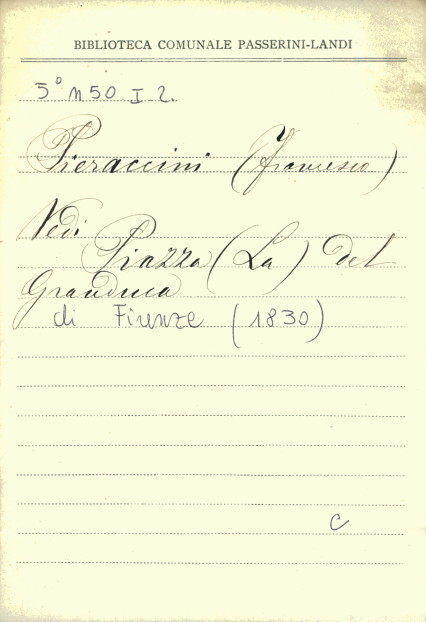 BIBLIOTECA COMUNALE PASSERINI-LANDI
5° n 50 I 2.
Pieraccini (Francesco)
Vedi
Piazza (La) del
Granduca
di Firenze (1830)
C